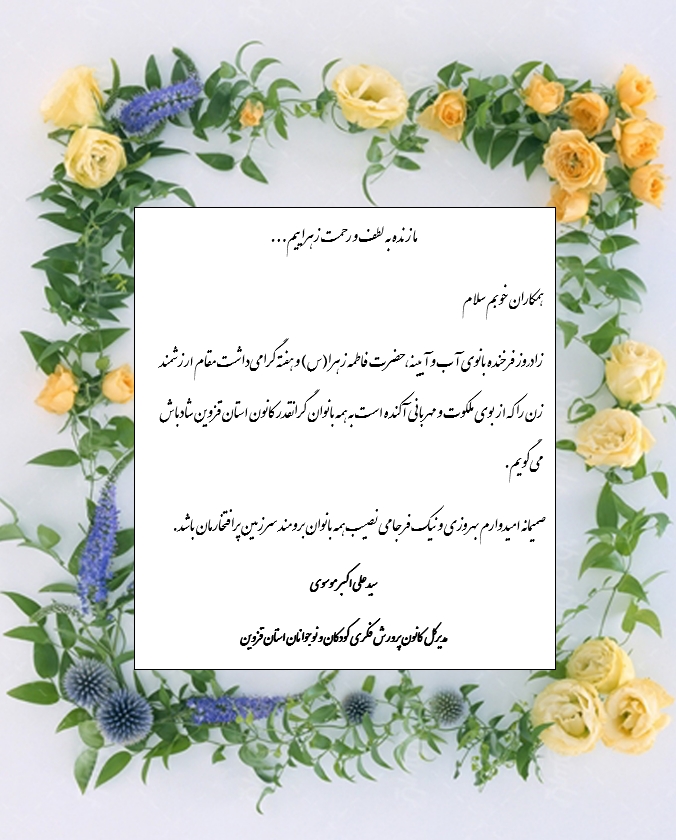 ما زنده به لطف و رحمت زهراییم...
همکاران خوبم سلام
زادروز فرخنده بانوی آب و آیینه، حضرت فاطمه زهرا (س) و هفته گرامی‌داشت مقام ارزشمند
زن را که از بوی ملکوت و مهربانی آکنده است به همه بانوان گرانقدر کانون استان قزوین شادباش
می‌گویم.
صمیمانه امیدوارم بهروزی و نیک‌فرجامی نصیب همه بانوان برومند سرزمین پرافتخارمان باشد.
سیدعلی‌اکبر موسوی
مدیرکل کانون پرورش فکری کودکان و نوجوانان استان قزوین